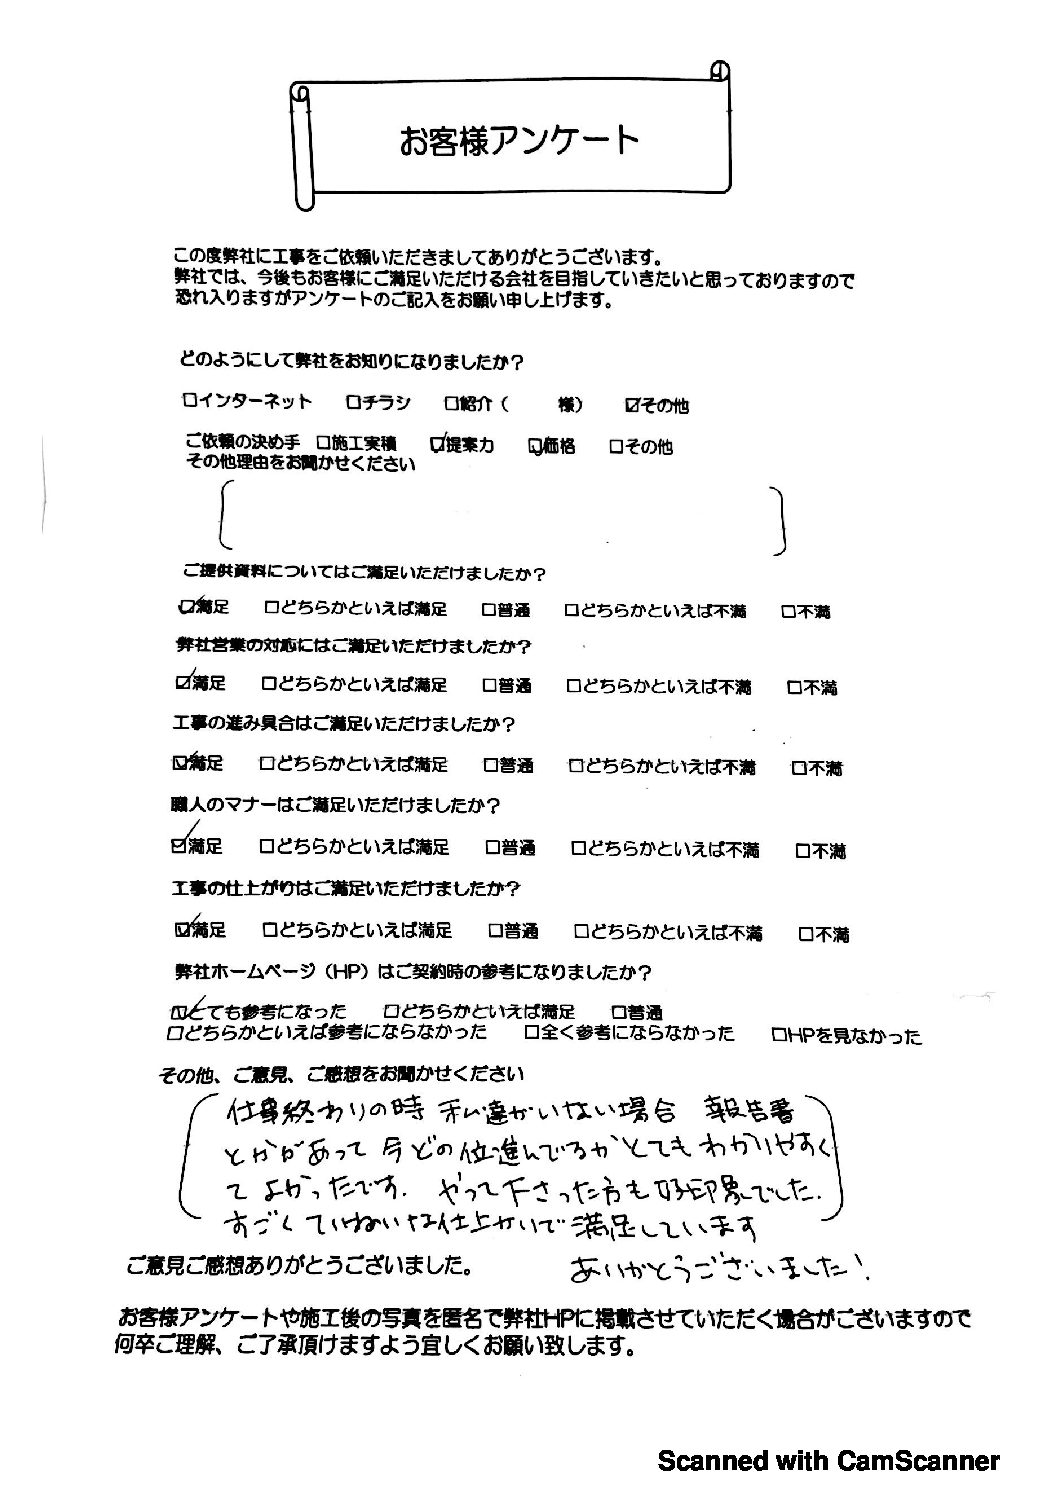 お客様アンケート
この度弊社に工事をご依頼いただきましてありがとうございます。
弊社では、今後もお客様にご満足いただける会社を目指していきたいと思っておりますので
恐れ入りますがアンケートのご記入をお願い申し上げます。
どのようにして弊社をお知りになりましたか？
□インターネット □チラシ □紹介（ 様） ☑その他
ご依頼の決め手 □施工実積 ☑提案力 ☑価格 □その他
その他理由をお聞かせください
ご提供資料についてはご満足いただけましたか？
☑満足 □どちらかといえば満足 □普通 □どちらかといえば不満 □不満
弊社営業の対応にはご満足いただけましたか？
☑満足 □どちらかといえば満足 □普通 □どちらかといえば不満 □不満
工事の進み具合はご満足いただけましたか？
☑満足 □どちらかといえば満足 □普通 □どちらかといえば不満 □不満
職人のマナーはご満足いただけましたか？
☑満足 □どちらかといえば満足 □普通 □どちらかといえば不満 □不満
工事の仕上がりはご満足いただけましたか？
☑満足 □どちらかといえば満足 □普通 □どちらかといえば不満 □不満
弊社ホームページ（HP）はご契約時の参考になりましたか？
☑とても参考になった □どちらかといえば満足 □普通
□どちらかといえば参考にならなかった □全く参考にならなかった □HPを見なかった
その他、ご意見、ご感想をお聞かせください
仕事終わりの時 私達がいない場合 報告書
とかがあって 今どの位進んでるかとてもわかりやすく
てよかったです. やって下さった方も好印象でした.
すごくていねいな仕上がいで満足しています
ご意見ご感想ありがとうございました。
ありがとうございました!
お客様アンケートや施工後の写真を匿名で弊社HPに掲載させていただく場合がございますので
何卒ご理解、ご了承頂けますよう宜しくお願い致します。
Scanned with CamScanner